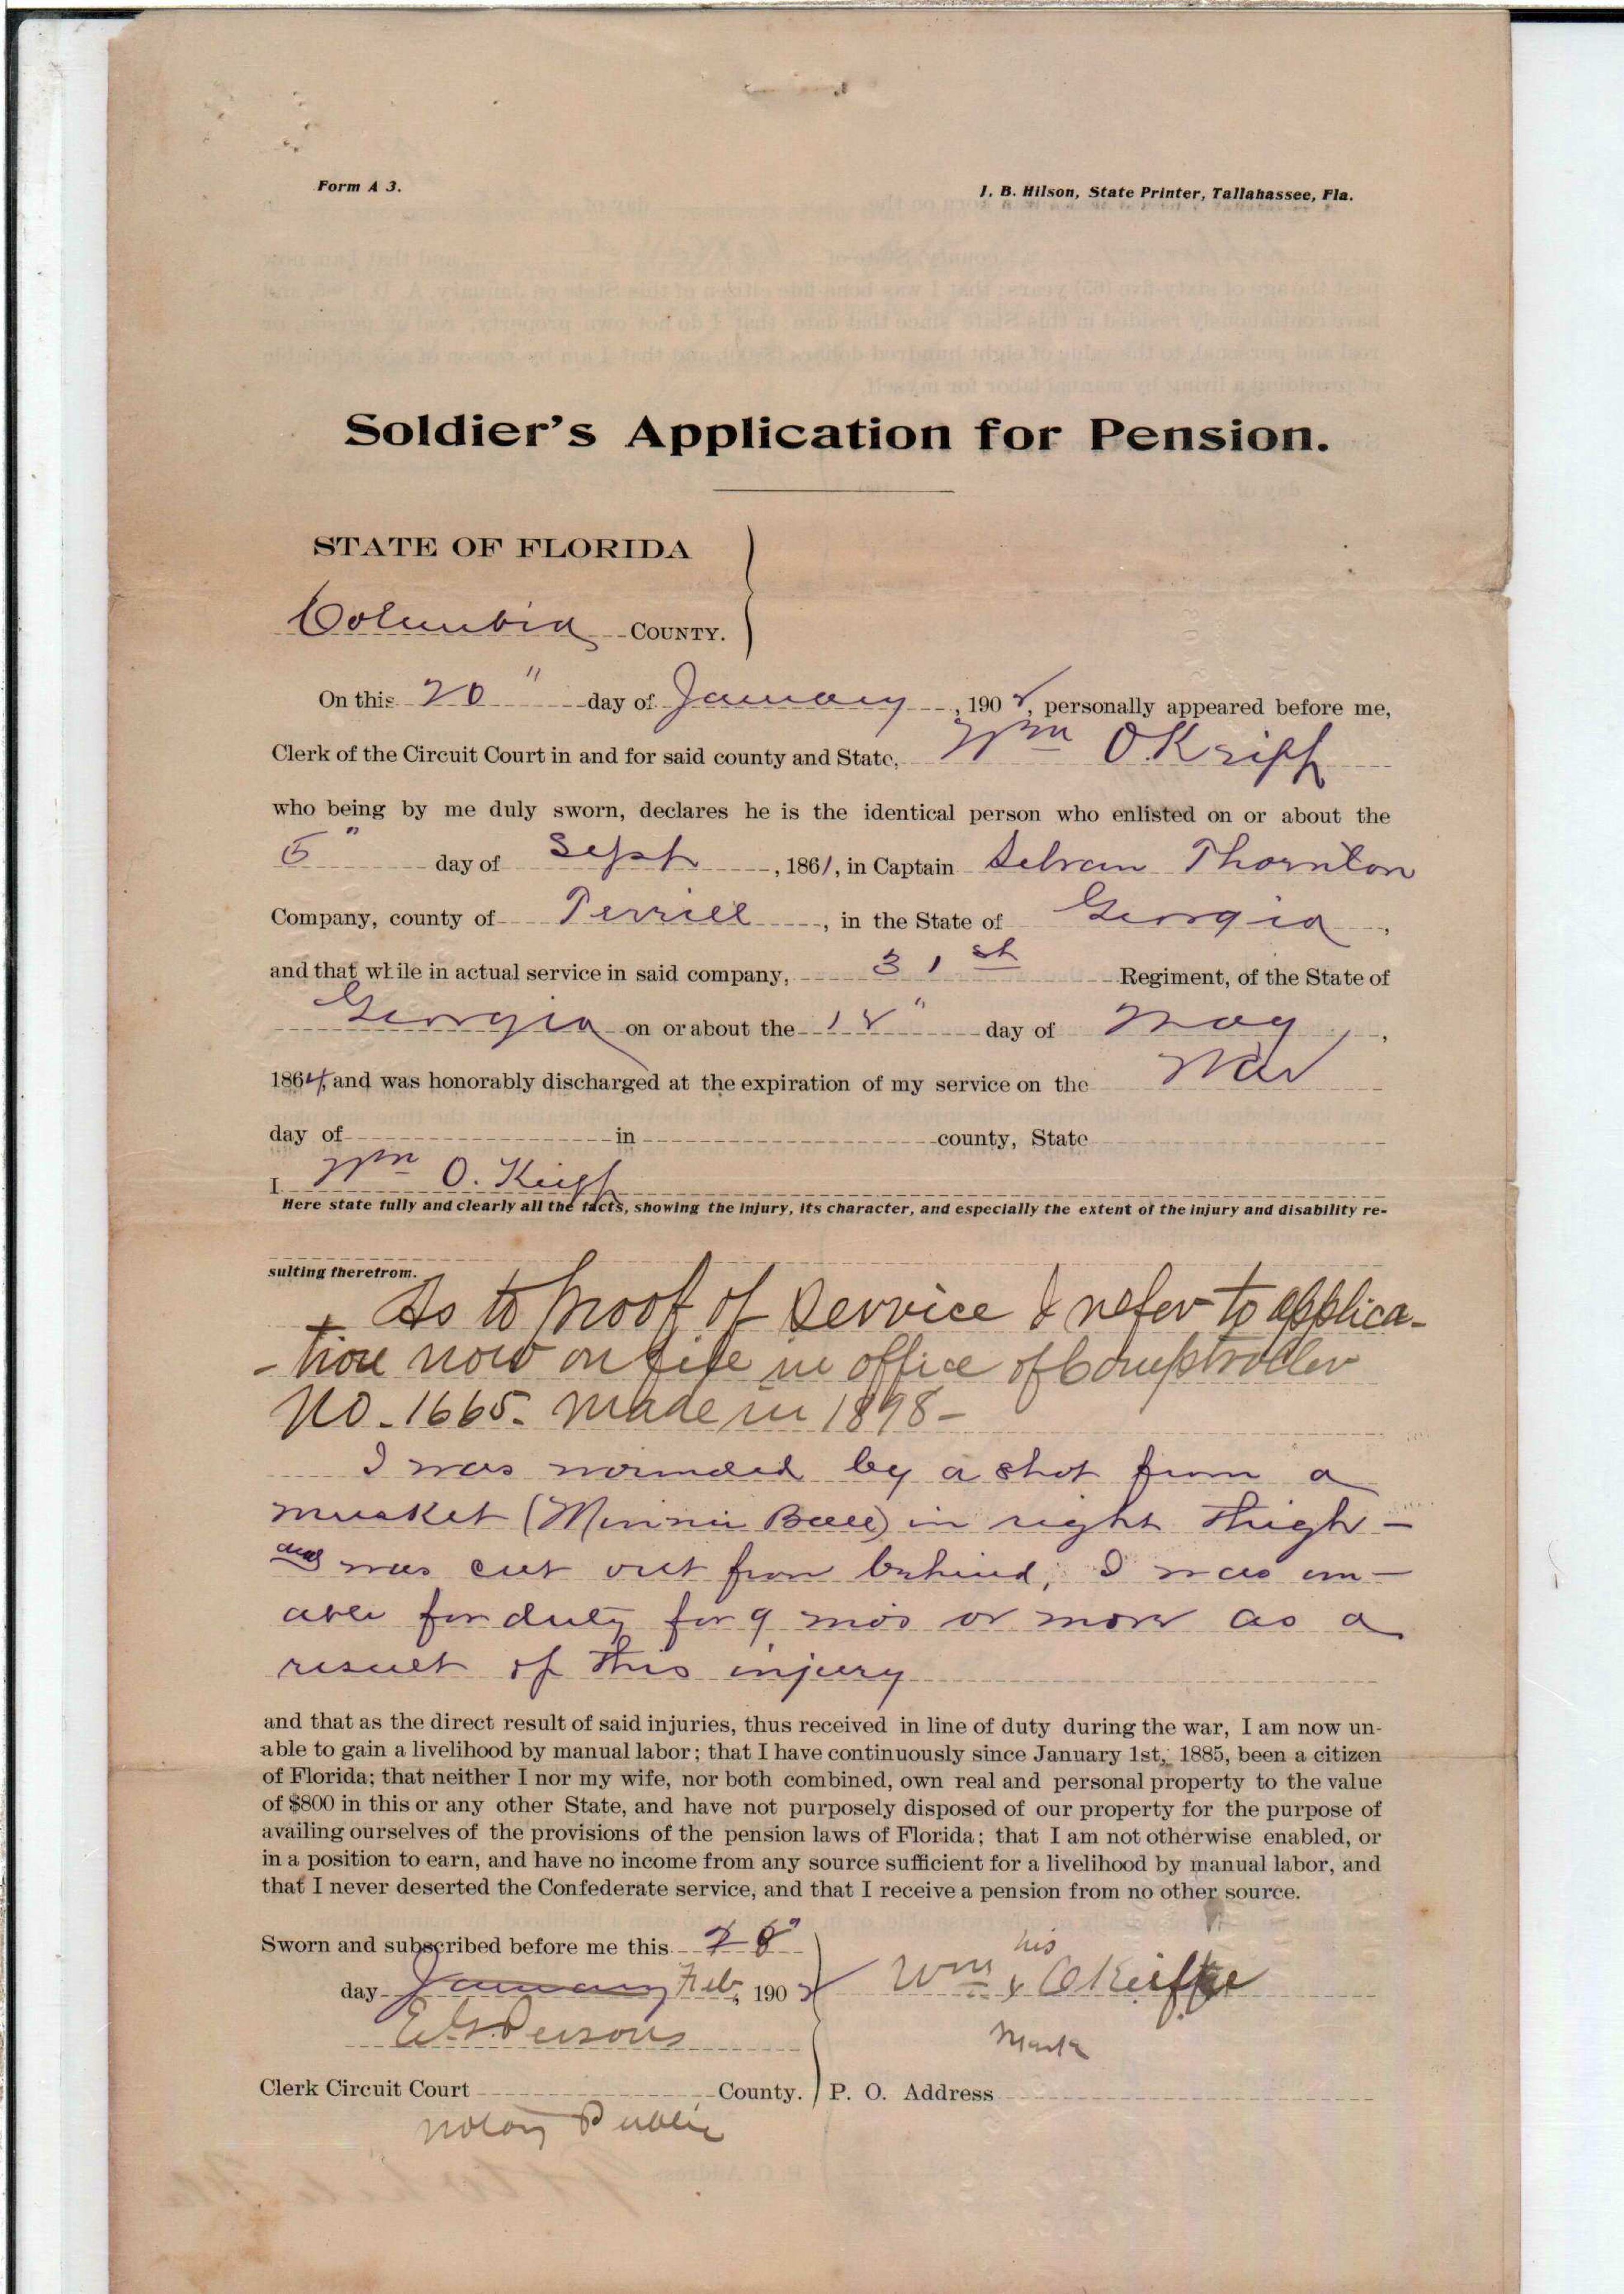 Form A 3.
I. B. Hilson, State Printer, Tallahassee, Fla.
Soldier's Application for Pension.
STATE OF FLORIDA
Columbia COUNTY.
On this 20" day of January, 1902, personally appeared before me,
Clerk of the Circuit Court in and for said county and State, Wm O.Kriff
who being by me duly sworn, declares he is the identical person who enlisted on or about the
5" day of Sept, 1861, in Captain Thornton
Company, county of Terrell, in the State of Georgia,
and that while in actual service in said company, 31st Regiment, of the State of
Georgia on or about the 12" day of May,
1864, and was honorably discharged at the expiration of my service on the War
day of in county, State
I Wm O. Keiff
Here state fully and clearly all the facts, showing the injury, its character, and especially the extent of the injury and disability re-
sulting therefrom.
+ As to Proof of Service I refer to applica-
-tion now on file in office of Comptroller
No. 1665. made in 1898-
I was wounded by a shot from a
musket (Minnie Ball) in right Thigh -
and was cut out from behind, I was un-
able for duty for 9 mos or more as a
result of this injury
and that as the direct result of said injuries, thus received in line of duty during the war, I am now un-
able to gain a livelihood by manual labor; that I have continuously since January 1st, 1885, been a citizen
of Florida; that neither I nor my wife, nor both combined, own real and personal property to the value
of $800 in this or any other State, and have not purposely disposed of our property for the purpose of
availing ourselves of the provisions of the pension laws of Florida; that I am not otherwise enabled, or
in a position to earn, and have no income from any source sufficient for a livelihood by manual labor, and
that I never deserted the Confederate service, and that I receive a pension from no other source.
Sworn and subscribed before me this 28"
day January Feb, 1902
his
Wm x OKeiffe
mark
Persons
Clerk Circuit Court County.
P. O. Address
Notary Public